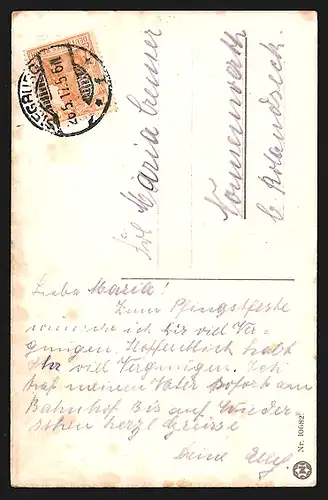 SIEGBURG
26.5.17.5-6N
Frl Maria Cremer
Nonnenwerth
b. Rolandseck.
Liebe Maria!
Zum Pfingstfeste
wünsche ich dir viel Ver-
gnügen. Hoffentlich habt
Ihr viel Vergnügen. Ich
traf meinen Vater sofort am
Bahnhof Bis auf Wieder
sehen herzl Grüsse
Deine
Nr. 10682